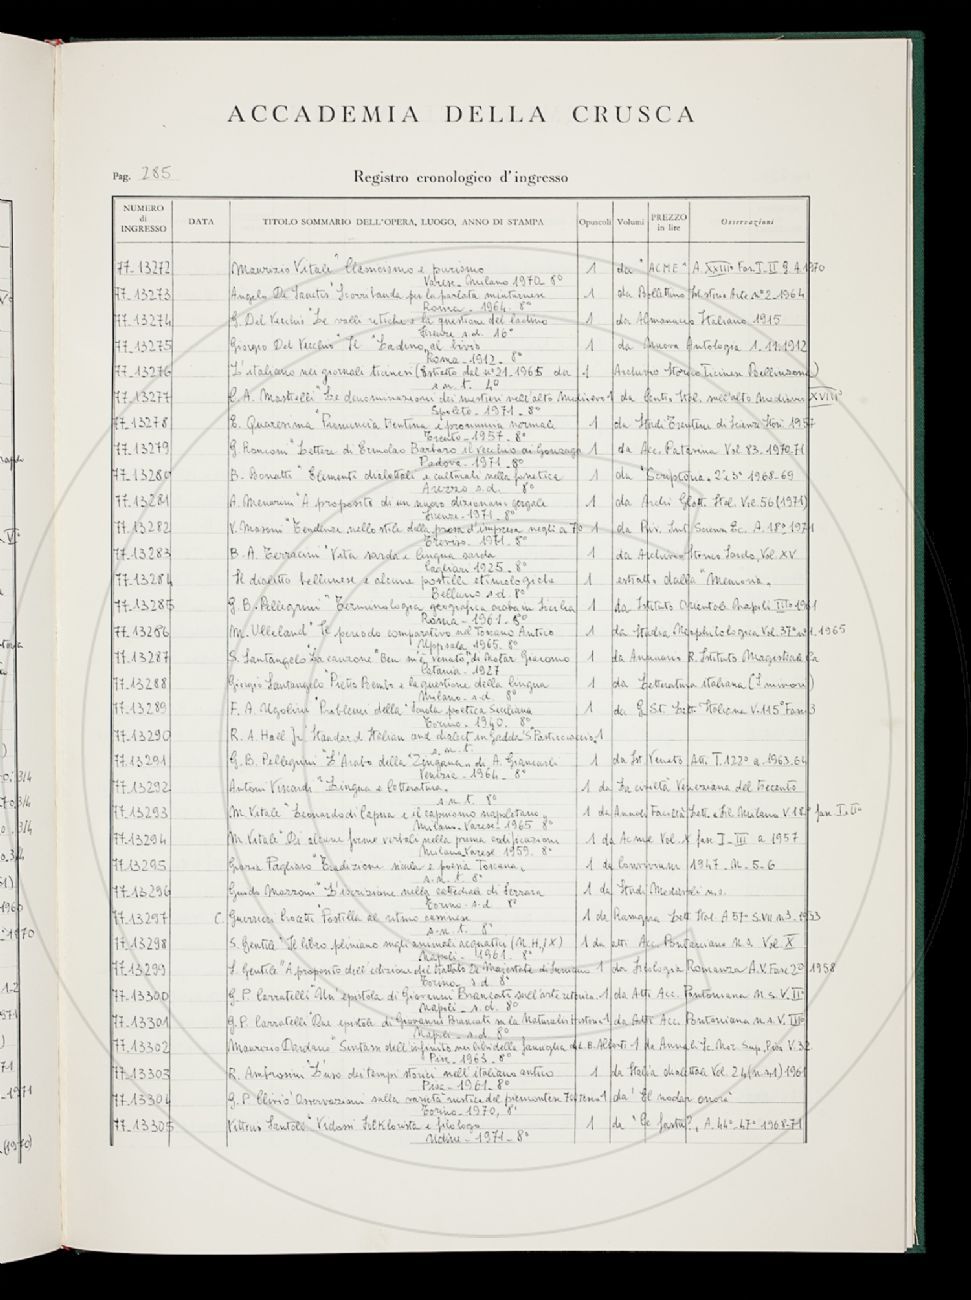 ACCADEMIA DELLA CRUSCA
Pag. 285
Registro cronologico d'ingresso
NUMERO di INGRESSO DATA TITOLO SOMMARIO DELL'OPERA, LUOGO, ANNO DI STAMPA Opuscoli Volumi PREZZO in lire Osservazioni
77-13272 Maurizio Vitali "Classicismo e purismo 1 da "ACME" A. XXIII° Fas. I-II 1970
Varese-Milano 1970 8°
77-13273 Angelo De Santis "Scorribanda per la parlata minturnese 1 da Bollettino Ist. Storia Arte n° 2-1964
Roma - 1964. 8°
77-13274 G. Del Vecchio "Le valli retiche e la questione del ladino 1 da Almanacco Italiano 1915
Firenze s.d. 16°
77-13275 Giorgio Del Vecchio "Il "Ladino, al bivio 1 da Nuova Antologia 1-11-1912
Roma - 1912 - 8°
77-13276 L'italiano nei giornali ticinesi (Estratto dal n° 21-1965 da 1 Archivio Storico Ticinese Bellinzona)
s.n.t. 4°
77-13277 G.A. Mastrelli "Le denominazioni dei mestieri nell'alto Medioevo 1 da Centro Ital. sull'alto Medioevo XVIII°
Spoleto - 1971 - 8°
77-13278 E. Quaresima "Pronuncia trentina e pronuncia normale 1 da Studi Trentini di Scienze Stori. 1957
Trento - 1957 - 8°
77-13279 G. Ronconi "Lettere di Ermolao Barbaro il Vecchio ai Gonzaga 1 da Acc. Patavina Vol. 83. 1970-71
Padova - 1971 - 8°
77-13280 B. Bonatti "Elementi dialettali e culturali nella fonetica 1 da "Scriptoria - 2° e 3° 1968-69
Arezzo s.d. 8°
77-13281 A. Menarini "A proposito di un nuovo dizionario gergale 1 da Archi. Glott. Ital. Vol. 56 (1971)
Firenze - 1971 - 8°
77-13282 V. Masoni "Tendenze nello stile della prosa d'impresa negli a. 70 1 da Riv. Int. Scienze Ec. A. 18° 1971
Treviso - 1971 - 8°
77-13283 B.A. Terracini "Vita sarda e lingua sarda 1 da Archivio Storico Sardo, Vol. XV
Cagliari 1925 - 8°
77-13284 Il dialetto bellunese e alcune postille etimologiche 1 estratto dalla "Memoria.
Belluno s.d. 8°
77-13285 G.B. Pellegrini "Terminologia geografica araba in Sicilia 1 da Istituto Orientale Napoli III° 1961
Roma - 1961 - 8°
77-13286 M. Ulleland "Il periodo comparativo nel Toscano Antico 1 da Studia Neophilologica Vol. 37° n° 1. 1965
Uppsala 1965. 8°
77-13287 S. Santangelo "La canzone "Ben m'è venuto", di Notar Giacomo 1 da Annuario R. Istituto Magistrale Ca
Catania - 1927
77-13288 Giorgio Santangelo "Pietro Bembo e la questione della lingua 1 da Letteratura italiana (I minori)
Milano - s.d. 8°
77-13289 F.A. Ugolini "Problemi della "Scuola poetica Siciliana 1 da G. St. Lett. Italiana V. 115° Fas. 3
Torino - 1940. 8°
77-13290 R.A. Hall Jr. Standard Italian and dialect in Gadda'S Pasticciaccio, 1
s.n.t.
77-13291 G.B. Pellegrini "L'Arabo della "Zingana, di A. Giancarli 1 da Ist. Veneto Atti T. 122° a. 1963-64
Venezia - 1964 - 8°
77-13292 Antoni Viscardi "Lingua e letteratura. 1 da La civiltà Veneziana del Trecento
s.n.t. 8°
77-13293 M. Vitali "Leonardo di Capua e il capuismo napoletano, 1 da Annali Facoltà Lett. e Fil. Milano V. 18° fas. I-II°
Milano-Varese - 1965 8°
77-13294 M. Vitali "Di alcune forme verbali nella prima codificazione 1 da Acme Vol. X fas. I-III a. 1957
Milano Varese 1959. 8°
77-13295 Gloria Pagliaro "Tradizione siciula e poesia Toscana, 1 da Convivium 1947 - N. 5-6
s.n.t. 8°
77-13296 Guido Mazzoni "L'iscrizione nella cattedrale di Ferrara 1 da Studi Medievali n.s.
Torino - s.d. 8°
77-13297 C. Guerrieri Crocetti "Postilla al ritmo cassinese 1 da Rassegna Lett. Ital. A. 57° S. VII n. 3 - 1953
s.n.t. 8°
77-13298 S. Gentile "Il libro pliniano sugli animali acquatici (N.H., IX) 1 da atti Acc. Pontaniana N.S. Vol. X
Napoli - 1961. 8°
77-13299 S. Gentile "A proposito dell'edizione del trattato De Majestate di Iuniano 1 da Filologia Romanza A. V. Fasc. 2° 1958
Torino - s.d. 8°
77-13300 G.P. Carratelli "Un'epistola di Giovanni Brancati sull'arte retorica. 1 da Atti Acc. Pontoniana N.S. V. II°
Napoli - s.d. 8°
77-13301 G.P. Carratelli "Due epistole di Giovanni Brancati su la Naturalis Historia 1 da Atti Acc. Pontaniana n.s. V. III°
Napoli - s.d. 8°
77-13302 Maurizio Dardano "Sintassi dell'infinito nei libri della famiglia di L.B. Alberti - 1 da Annali Sc. Nor. Sup. Pisa V. 32
Pisa - 1963 - 8°
77-13303 R. Ambrosini L'uso dei tempi storici nell'italiano antico 1 da Italia dialettale Vol. 24 (n.s. 1) 1961
Pisa - 1961 - 8°
77-13304 G.P. Clivio "Osservazioni sulla varietà rustica del piemontese 1 da 'El nodar onorà'
Torino - 1970, 8°
77-13305 Vittorio Santoli "Vidossi Folklorista e filologo 1 da "Ce fastu?, A. 44°-47° 1968-71
Udine - 1971 - 8°